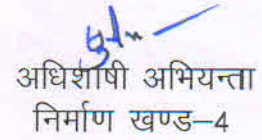 अधिशाषी अभियन्ता
निर्माण खण्ड–4